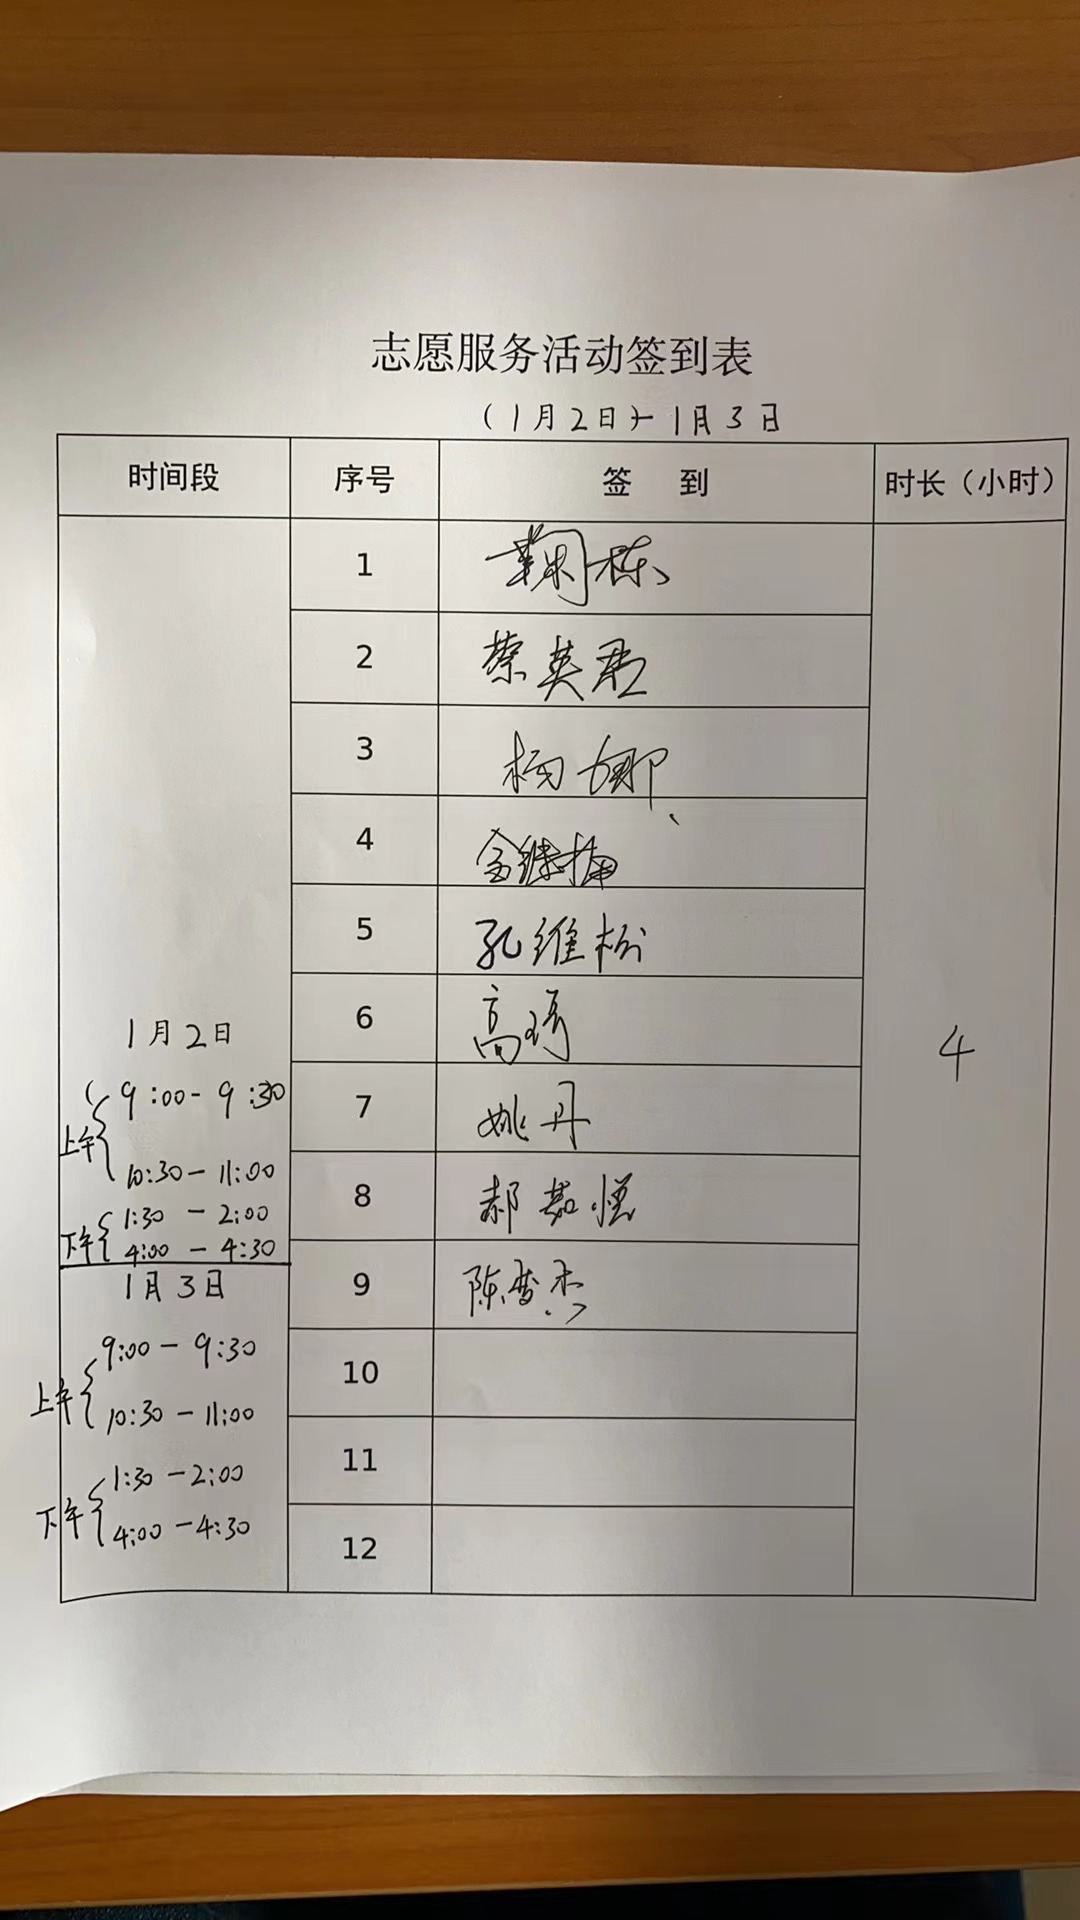 志愿服务活动签到表
(1月2日)-1月3日
时间段 序号 签 到 时长（小时）
1 鞠栋
2 蔡英君
3 杨娜
4 金继
5 孔维松
6 高
7 姚丹
8 郝
9 陈
10
11
12
1月2日
上午 9:00-9:30
10:30-11:00
下午 1:30-2:00
4:00-4:30
1月3日
上午 9:00-9:30
10:30-11:00
下午 1:30-2:00
4:00-4:30
4